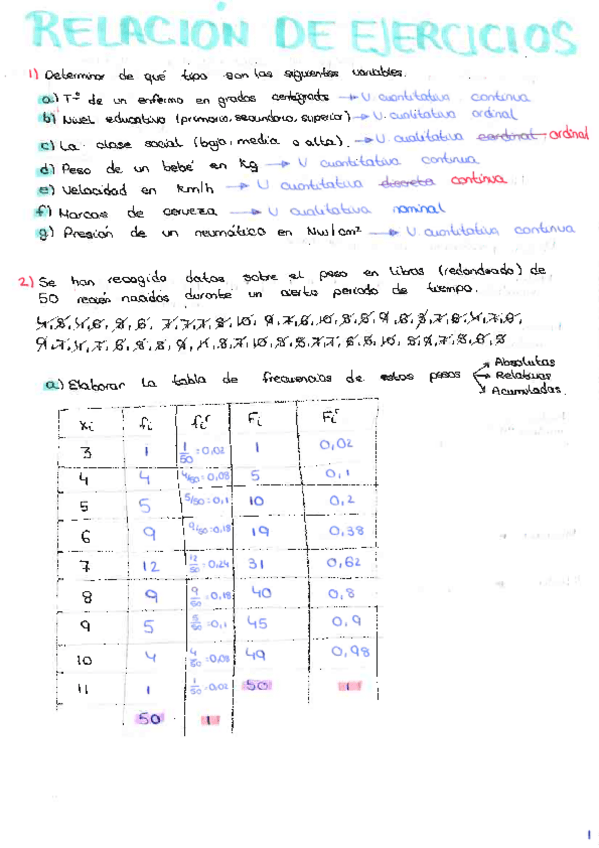 RELACIÓN DE EJERCICIOS
1) Determinar de qué tipo son las siguientes variables.
a) Tª de un enfermo en grados centígrados → V. cuantitativa continua
b) Nivel educativo (primaria, secundaria, superior) → V. cualitativa ordinal
c) La clase social (baja, media o alta). → V. cualitativa cardinal ordinal
d) Peso de un bebé en Kg → V cuantitativa continua
e) Velocidad en km/h → V cuantitativa discreta continua
f) Marcas de cerveza → V cualitativa nominal
g) Presión de un neumático en Nw/cm² → V. cuantitativa continua
2) Se han recogido datos sobre el peso en libras (redondeado) de
50 recién nacidos durante un cierto periodo de tiempo.
a) Elaborar la tabla de frecuencias de estos pesos
Absolutas
Relativas
Acumuladas.
xi fi fiʳ Fi Fiʳ
3 1 1/50 = 0,02 1 0,02
4 4 4/50 = 0,08 5 0,1
5 5 5/50 = 0,1 10 0,2
6 9 9/50 = 0,18 19 0,38
7 12 12/50 = 0,24 31 0,62
8 9 9/50 = 0,18 40 0,8
9 5 5/50 = 0,1 45 0,9
10 4 4/50 = 0,08 49 0,98
11 1 1/50 = 0,02 50 1
50 1
1